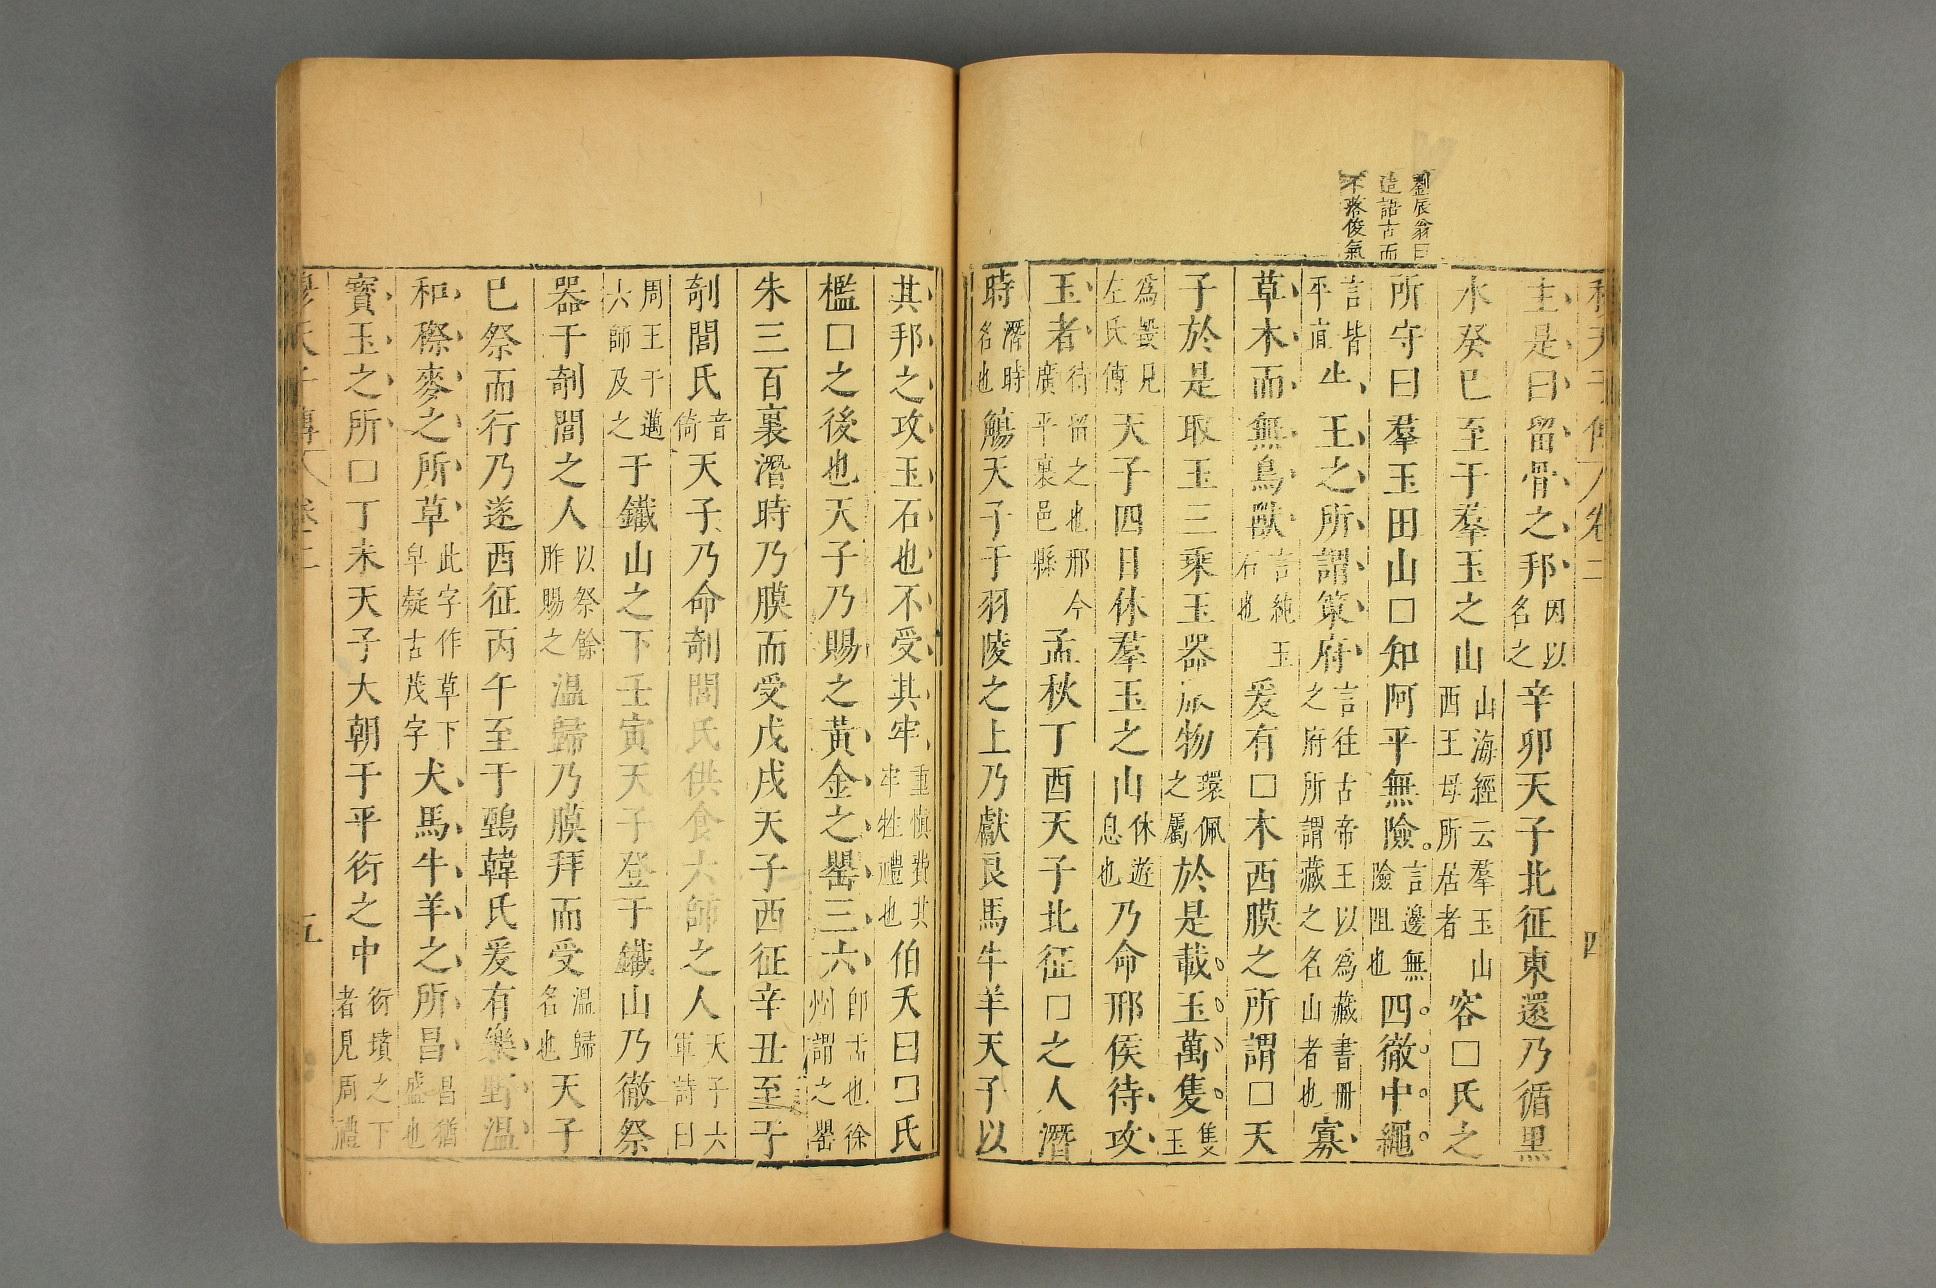 劉辰翁曰
造語古而
不落俊氣
穆天子傳 卷二 四
主是曰留骨之邦因以名之辛卯天子北征東還乃循黑
水癸巳至于羣玉之山山海經云羣玉山西王母所居者容□氏之
所守曰羣玉田山□知阿平無險言邊無險阻也四徹中繩
言皆平直 王之所謂策府言往古帝王以為藏書册之府所謂藏之名山者也寡
草木而無鳥獸言純玉石也爰有□木西膜之所謂□天
子於是取玉三乘玉器 物環佩之屬於是載玉萬隻隻玉
為瑴見左氏傳天子四日休羣玉之山休遊息也乃命邢侯待攻
玉者待留之也邢今廣平襄邑縣孟秋丁酉天子北征□之人潛
時潛時名也觴天子于羽陵之上乃獻良馬牛羊天子以
其邦之攻玉石也不受其牢重慎費其牢牲禮也伯夭曰□氏
檻□之後也天子乃賜之黃金之罌三六即盂也徐州謂之罌
朱三百裹潛時乃膜而受戊戌天子西征辛丑至于
剞閭氏音倚天子乃命剞閭氏供食六師之人天子六軍詩曰
周王于邁六師及之于鐵山之下壬寅天子登于鐵山乃徹祭
器于剞閭之人以祭餘胙賜之溫歸乃膜拜而受溫歸名也天子
已祭而行乃遂西征丙午至于鄄韓氏爰有樂野溫
和穄麥之所草此字作草下皁疑古茂字犬馬牛羊之所昌昌猶盛也
寶玉之所□丁未天子大朝于平衍之中衍墳之下者見周禮
穆天子傳 卷二 五